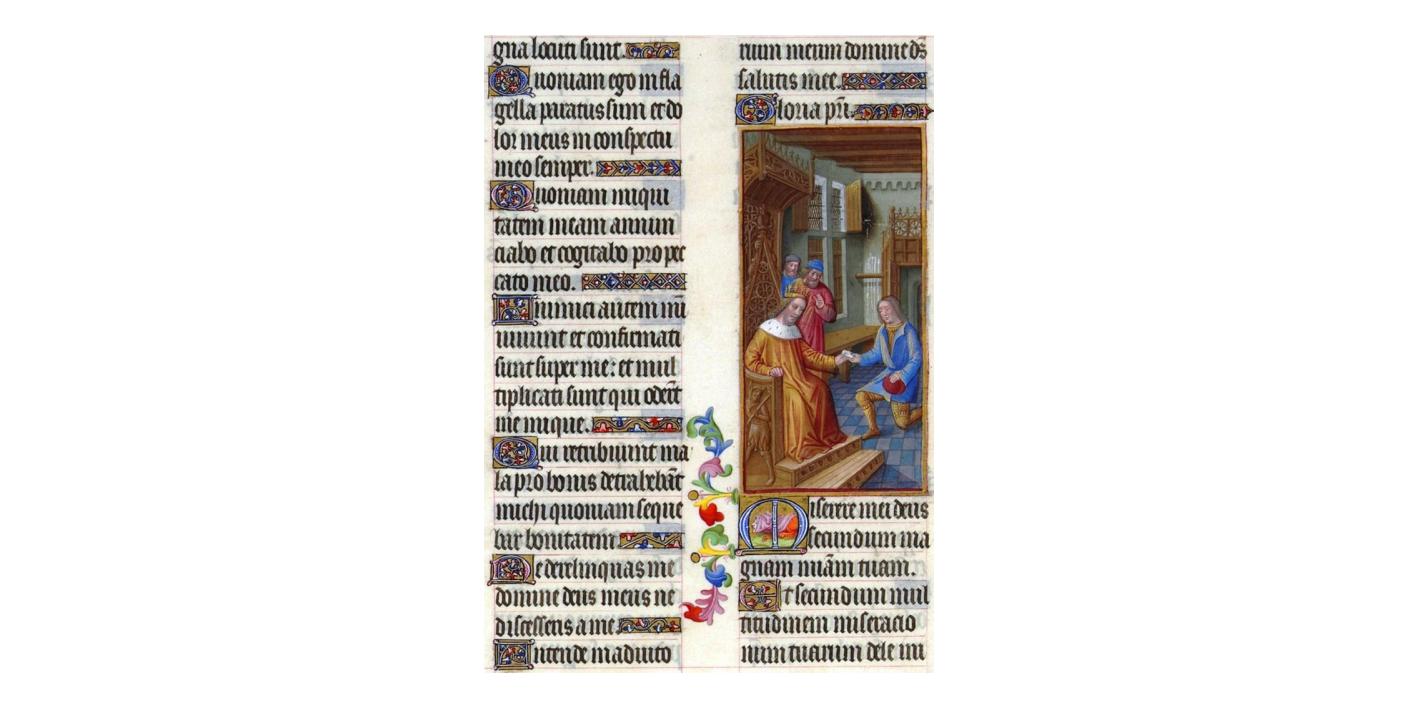 gna locuti sunt.
Quoniam ego in fla
gella paratus sum et do
lor meus in conspectu
meo semper.
Quoniam iniqui
tatem meam annun
ciabo et cogitabo pro pec
cato meo.
Inimici autem mī
uiuunt et confirmati
sunt super me: et mul
tiplicati sunt qui oderūt
me inique.
Qui retribuunt ma
la pro bonis detrahebāt
michi quoniam seque
bar bonitatem
Ne derelinquas me
domine deus meus ne
discesseris a me
Intende in adiuto
rium meum domine ds̄
salutis mee.
Gloria pr̄i.
Miserere mei deus
secundum ma
gnam miām tuam.
Et secundum mul
titudinem miseracio
num tuarum dele ini